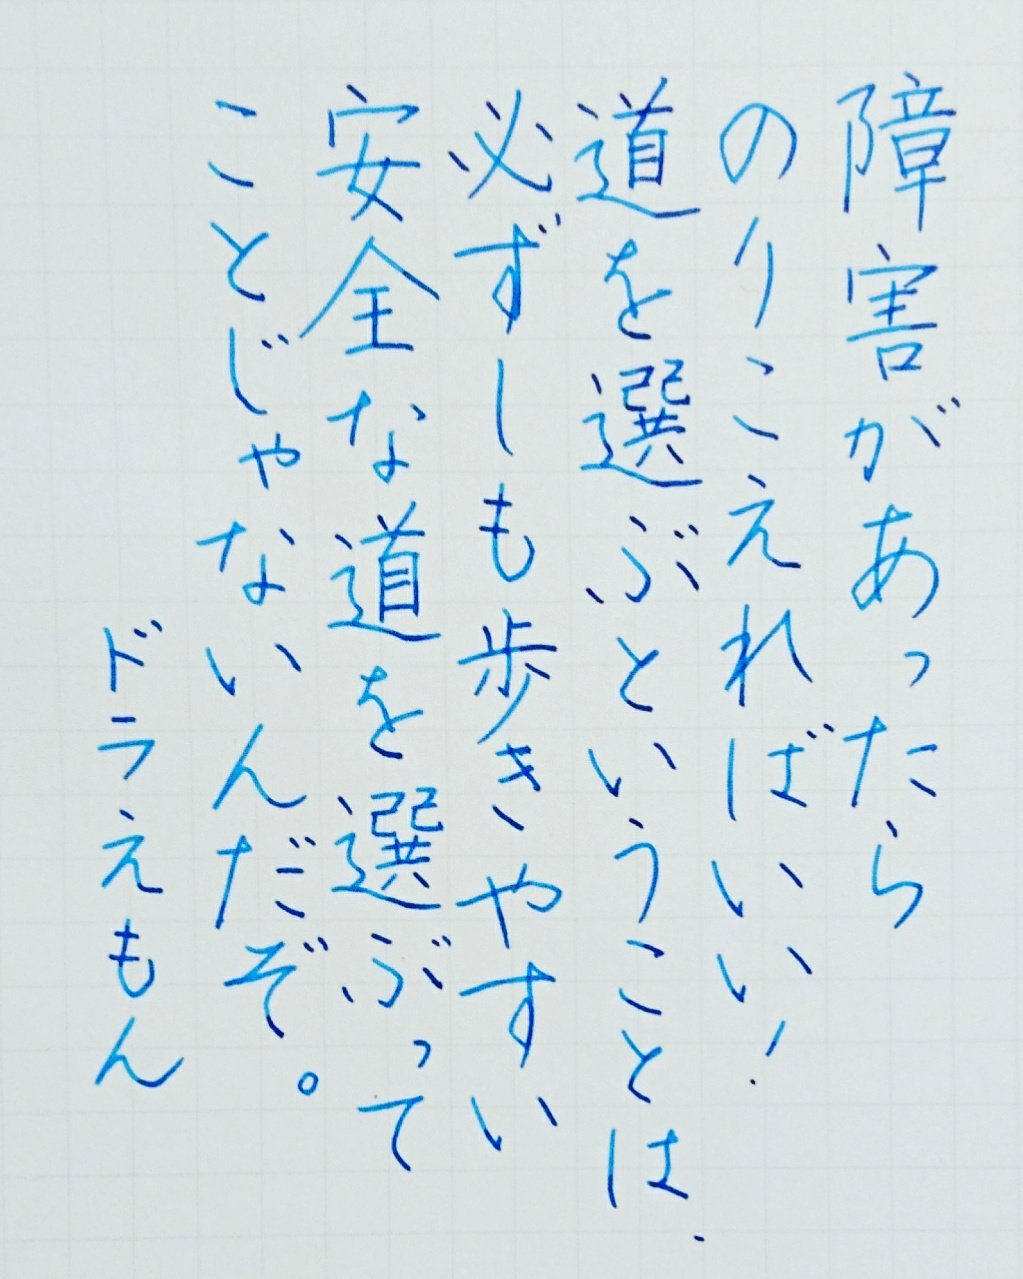 障害があったら
のりこえればいい！
道を選ぶということは、
必ずしも歩きやすい
安全な道を選ぶって
ことじゃないんだぞ。
ドラえもん